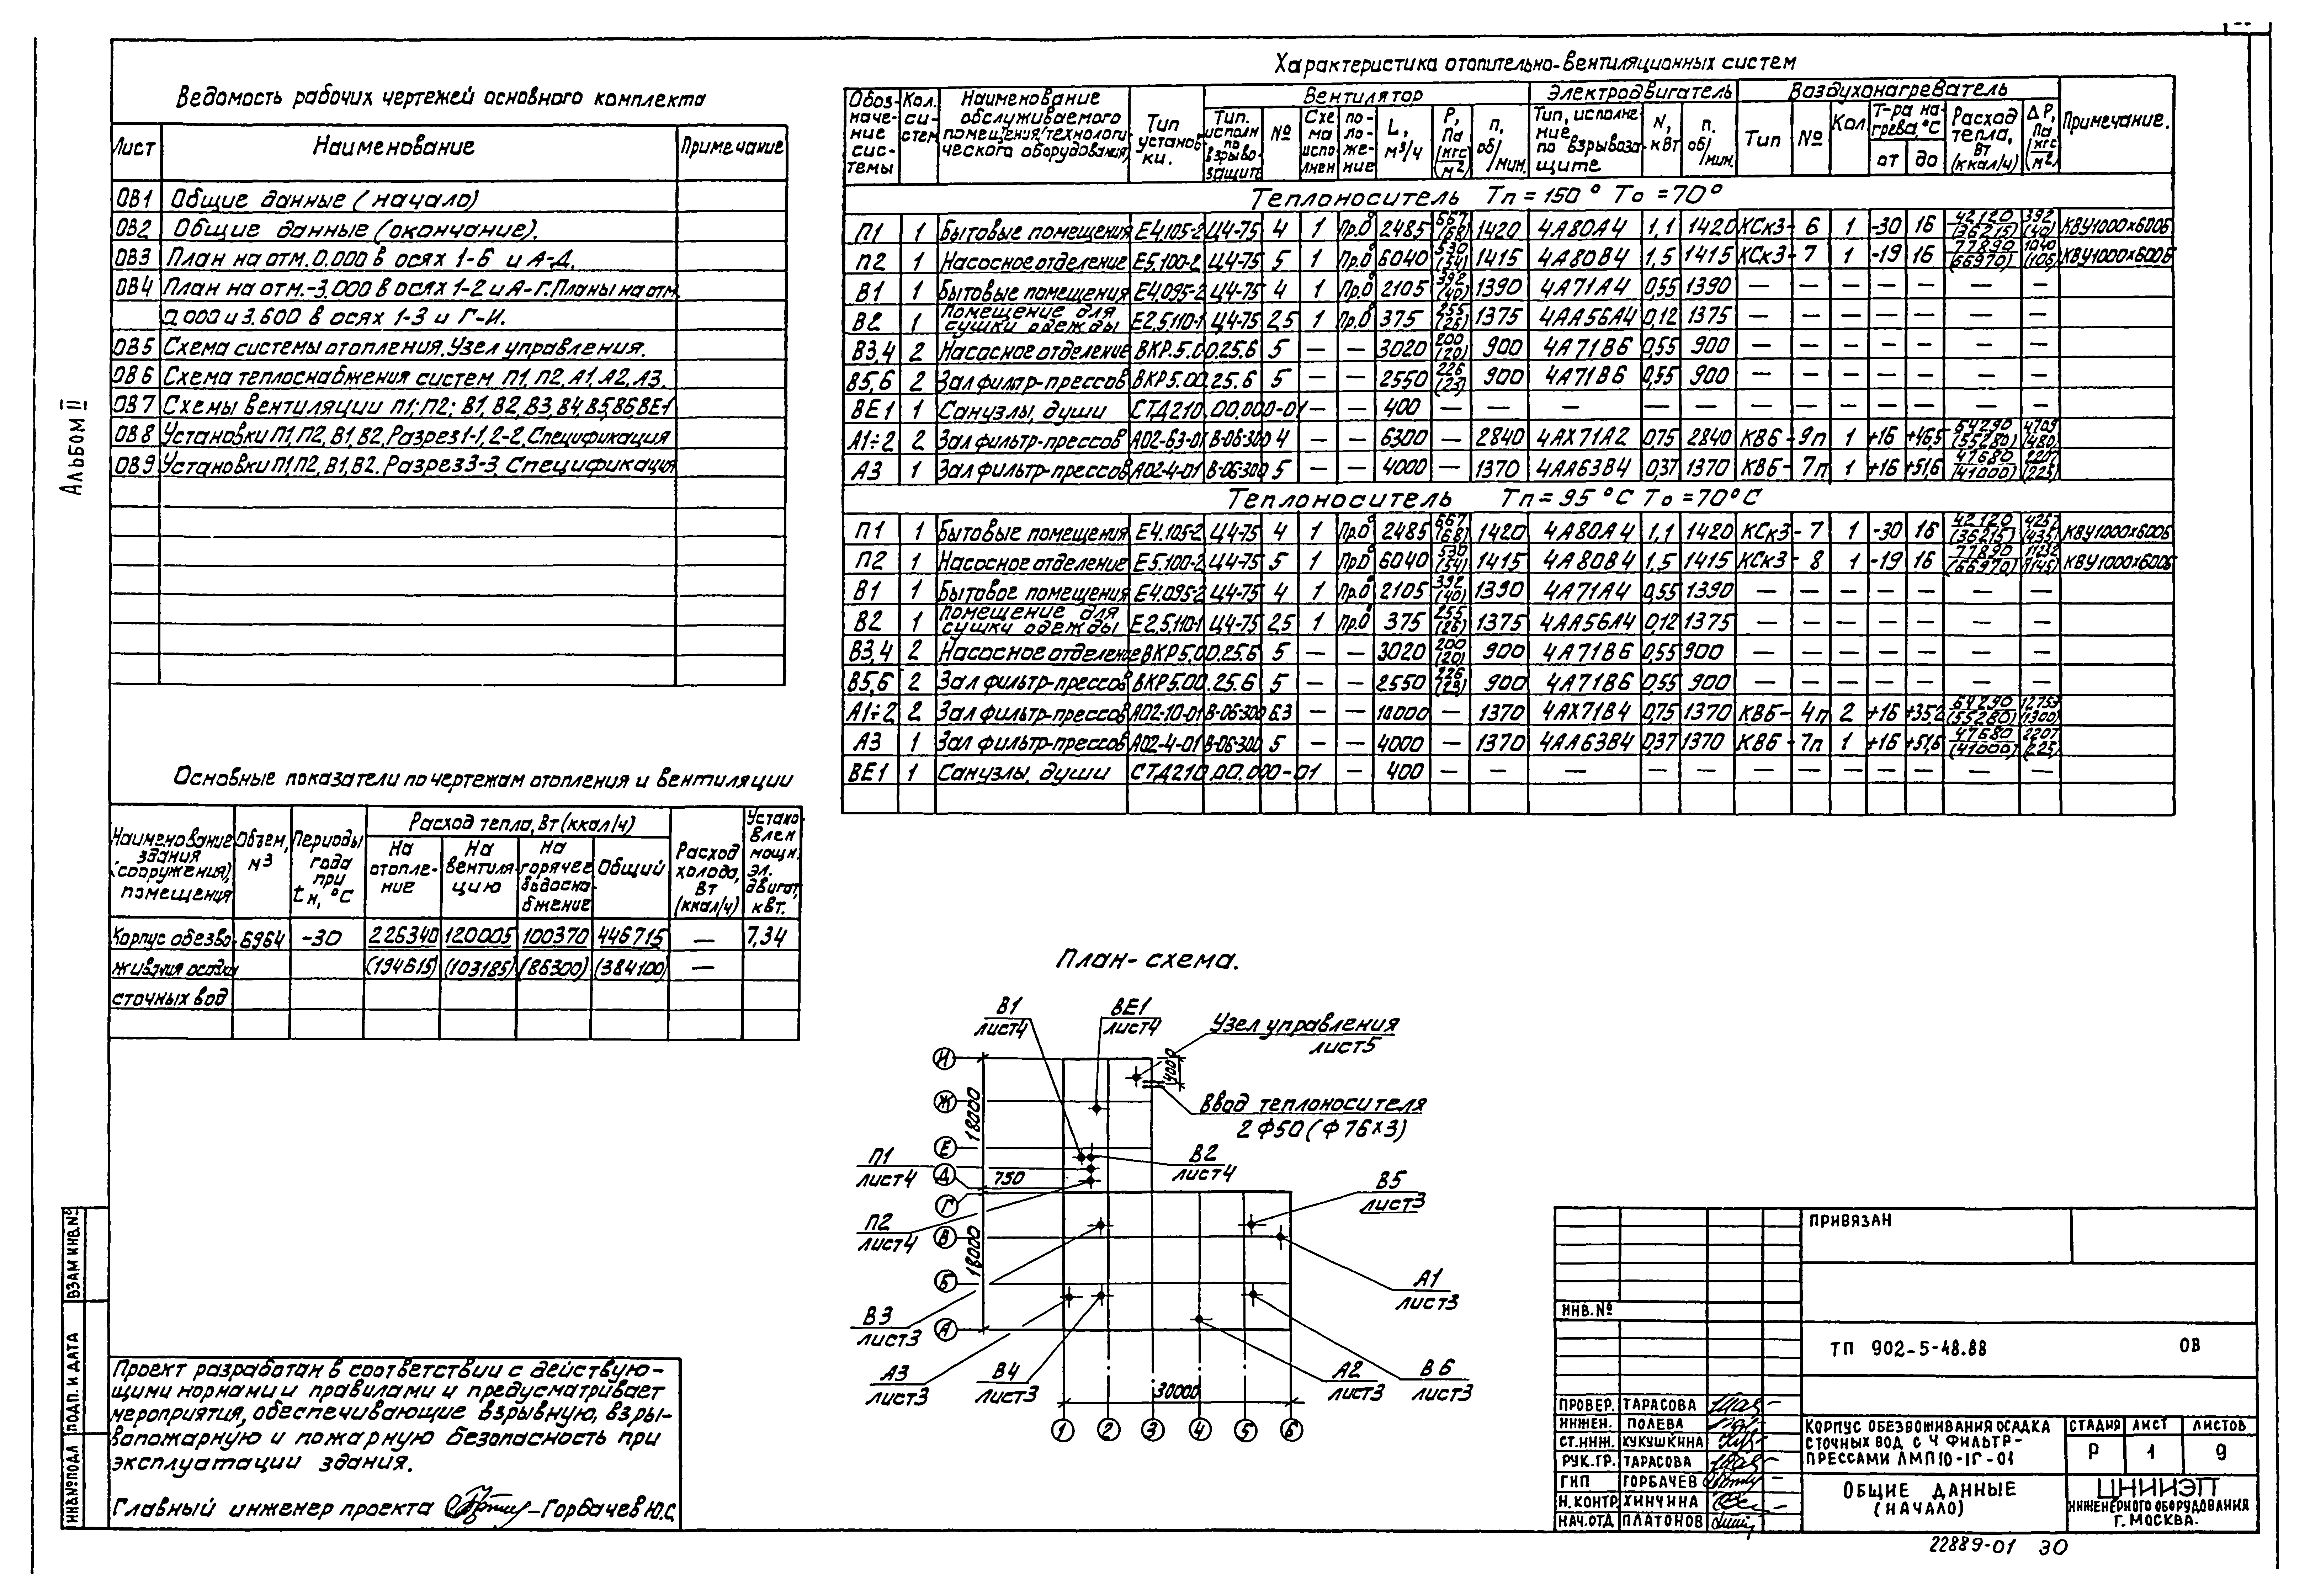 Альбом II
Ведомость рабочих чертежей основного комплекта
Лист Наименование Примечание
ОВ1 Общие данные (начало)
ОВ2 Общие данные (окончание).
ОВ3 План на отм. 0.000 в осях 1-6 и А-Д.
ОВ4 План на отм.-3.000 в осях 1-2 и А-Г. Планы на отм.
0,000 и 3.600 в осях 1-3 и Г-И.
ОВ5 Схема системы отопления. Узел управления.
ОВ6 Схема теплоснабжения систем П1, П2, А1, А2, А3.
ОВ7 Схемы вентиляции П1; П2; В1, В2, В3, В4, В5, В6 ВЕ-1
ОВ8 Установки П1, П2, В1, В2, Разрез 1-1, 2-2, Спецификация
ОВ9 Установки П1, П2, В1, В2. Разрез 3-3, Спецификация
Характеристика отопительно-вентиляционных систем
Обозначение системы Кол. систем Наименование обслуживаемого помещения (технологического оборудования) Тип установки. Вентилятор Электродвигатель Воздухонагреватель Примечание.
Тип. исполн по взрывозащите № Схема исполнен положение L, м³/ч P, Па (кгс/м²) n, об/мин. Тип, исполнение по взрывозащите N, кВт n. об/мин. Тип № Кол. Т-ра нагрева, °С от до Расход тепла, Вт (ккал/ч) ΔP, Па (кгс/м²)
Теплоноситель Тп = 150° То = 70°
П1 1 Бытовые помещения Е4.105-2 Ц4-75 4 1 Пр.0° 2485 667 (68) 1420 4А80А4 1,1 1420 КСк3- 6 1 -30 16 42120 (36215) 392 (40) КВУ1000х600Б
П2 1 Насосное отделение Е5.100-2 Ц4-75 5 1 Пр.0° 6040 530 (54) 1415 4А80В4 1,5 1415 КСк3- 7 1 -19 16 77890 (66970) 1040 (106) КВУ1000х600Б
В1 1 Бытовые помещения Е4.095-2 Ц4-75 4 1 Пр.0° 2105 392 (40) 1390 4А71А4 0,55 1390 — — — — — — —
В2 1 Помещение для сушки одежды Е2,5.110-1 Ц4-75 2,5 1 Пр.0° 375 255 (26) 1375 4АА56А4 0,12 1375 — — — — — — —
В3,4 2 Насосное отделение ВКР.5.00.25.6 5 — — 3020 200 (20) 900 4А71В6 0,55 900 — — — — — — —
В5,6 2 Зал фильтр-прессов ВКР5.00.25.6 5 — — 2550 226 (23) 900 4А71В6 0,55 900 — — — — — — —
ВЕ1 1 Санузлы, души СТД210.00.000-01 — — 400 — — — — — — — — — — — —
А1÷2 2 Зал фильтр-прессов А02-6,3-01 В-06-300 4 — — 6300 — 2840 4АХ71А2 0,75 2840 КВБ - 9п 1 +16 +46,5 64290 (55280) 4709 (480)
А3 1 Зал фильтр-прессов А02-4-01 В-06-300 5 — — 4000 — 1370 4АА63В4 0,37 1370 КВБ - 7п 1 +16 +51,6 47680 (41000) 2207 (225)
Теплоноситель Тп = 95°С То = 70°С
П1 1 Бытовые помещения Е4.105-2 Ц4-75 4 1 Пр.0° 2485 667 (68) 1420 4А80А4 1,1 1420 КСк3 - 7 1 -30 16 42120 (36215) 4257 (435) КВУ1000х600Б
П2 1 Насосное отделение Е5.100-2 Ц4-75 5 1 Пр.0° 6040 530 (54) 1415 4А80В4 1,5 1415 КСк3 - 8 1 -19 16 77890 (66970) (1145) КВУ1000х600Б
В1 1 Бытовое помещения Е4.095-2 Ц4-75 4 1 Пр.0° 2105 392 (40) 1390 4А71А4 0,55 1390 — — — — — — —
В2 1 Помещение для сушки одежды Е2,5.110-1 Ц4-75 2,5 1 Пр.0° 375 255 (26) 1375 4АА56А4 0,12 1375 — — — — — — —
В3,4 2 Насосное отделение ВКР5.00.25.6 5 — — 3020 200 (20) 900 4А71В6 0,55 900 — — — — — — —
В5,6 2 Зал фильтр-прессов ВКР5.00.25.6 5 — — 2550 226 (23) 900 4А71В6 0,55 900 — — — — — — —
А1÷2 2 Зал фильтр-прессов А02-10-01 В-06-300 6,3 — — 10000 — 1370 4АХ71В4 0,75 1370 КВБ - 4п 2 +16 +35,2 64290 (55280) 12753 (1300)
А3 1 Зал фильтр-прессов А02-4-01 В-06-300 5 — — 4000 — 1370 4АА63В4 0,37 1370 КВБ - 7п 1 +16 +51,6 47680 (41000) 2207 (225)
ВЕ1 1 Санузлы, души СТД210.00.000-01 — 400 — — — — — — — — — — — —
Основные показатели по чертежам отопления и вентиляции
Наименование здания (сооружения), помещения Объем, м3 Периоды года при tн, °С Расход тепла, Вт (ккал/ч) Расход холода, Вт (ккал/ч) Установлен мощн. эл. двигат, кВт.
На отопление На вентиляцию На горячее водоснабжение Общий
Корпус обезво- 6964 -30 226340 120005 100370 446715 — 7,34
живания осадка (194615) (103185) (86300) (384100) —
сточных вод
План-схема.
В1 лист4
ВЕ1 лист4
Узел управления лист5
4000
Ввод теплоносителя
2 Ф50 (Ф76×3)
И
Ж
Е
Д
Г
В
Б
А
18000
750
18000
П1 лист4
В2 лист4
П2 лист4
В5 лист3
А1 лист3
В3 лист3
А3 лист3
В4 лист3
А2 лист3
В6 лист3
30000
1 2 3 4 5 6
Проект разработан в соответствии с действую-
щими нормами и правилами и предусматривает
мероприятия, обеспечивающие взрывную, взры-
вопожарную и пожарную безопасность при
эксплуатации здания.
Главный инженер проекта Горбачев Ю.С.
ВЗАМ ИНВ.№
ПОДП. И ДАТА
ИНВ№ПОДЛ
ПРИВЯЗАН
ИНВ.№
ТП 902-5-48.88 ОВ
ПРОВЕР. ТАРАСОВА
ИНЖЕН. ПОЛЕВА
СТ.ИНЖ. КУКУШКИНА
РУК.ГР. ТАРАСОВА
ГИП ГОРБАЧЕВ
Н.КОНТР. ХИНЧИНА
НАЧ.ОТД ПЛАТОНОВ
КОРПУС ОБЕЗВОЖИВАНИЯ ОСАДКА
СТОЧНЫХ ВОД С 4 ФИЛЬТР-
ПРЕССАМИ ЛМП10-1Г-01
СТАДИЯ ЛИСТ ЛИСТОВ
Р 1 9
ОБЩИЕ ДАННЫЕ
(НАЧАЛО)
ЦНИИЭП
ИНЖЕНЕРНОГО ОБОРУДОВАНИЯ
Г. МОСКВА.
22889-01 30